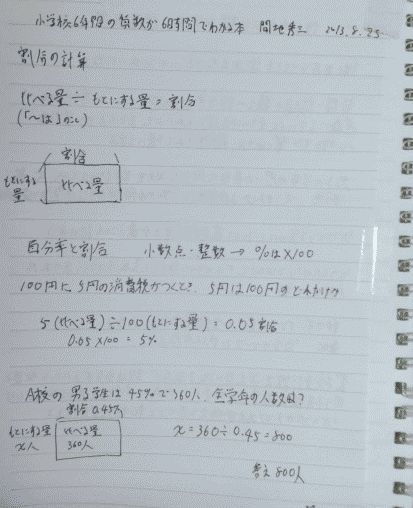 小学校6年間の算数が6時間でわかる本 間地秀三 2013.8.25
割合の計算
比べる量 ÷ もとにする量 = 割合
(「〜は」のこと)
割合
もとにする量
比べる量
百分率と割合 小数点・整数 → %は×100
100円に、5円の消費税がつくとき、5円は100円のどれだけか
5(比べる量)÷100(もとにする量) = 0.05 割合
0.05×100 = 5%
A校の男子学生は45%で360人、全学年の人数は?
割合 0.45%
もとにする量 x人
比べる量 360人
x = 360 ÷ 0.45 = 800
答え 800人